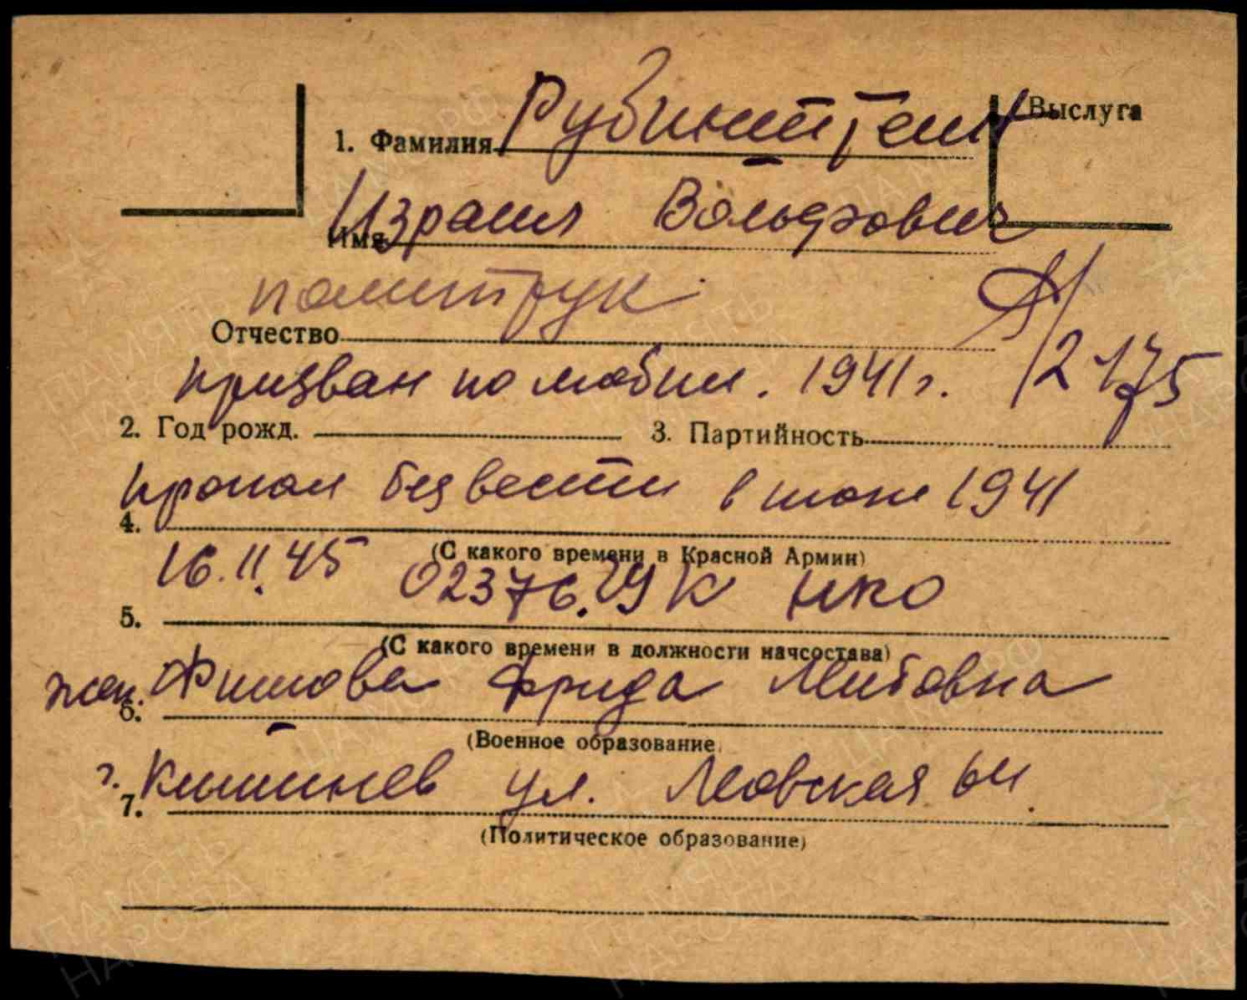 1. Фамилия Рубинштейн Выслуга
Израил Вольфович
Имя
политрук
Отчество
призван по мобил. 1941 г. 2175
2. Год рожд. 3. Партийность
пропал без вести в июне 1941
4.
(С какого времени в Красной Армии)
16.11.45 02376. УК НКО
5.
(С какого времени в должности начсостава)
жен. Фрида
6.
(Военное образование)
г. Кишинев ул. 64
7.
(Политическое образование)
ПАМЯТЬ НАРОДА